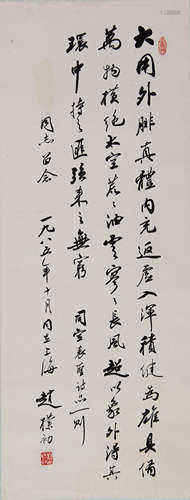 大用外腓真體內充返虛入渾積健為雄具備
萬物橫絕太空荒〻油雲寥〻長風超以象外得其
環中持之匪強來之無窮
司空表聖詩品一則
同志留念 一九八五年十月 在上海 趙樸初